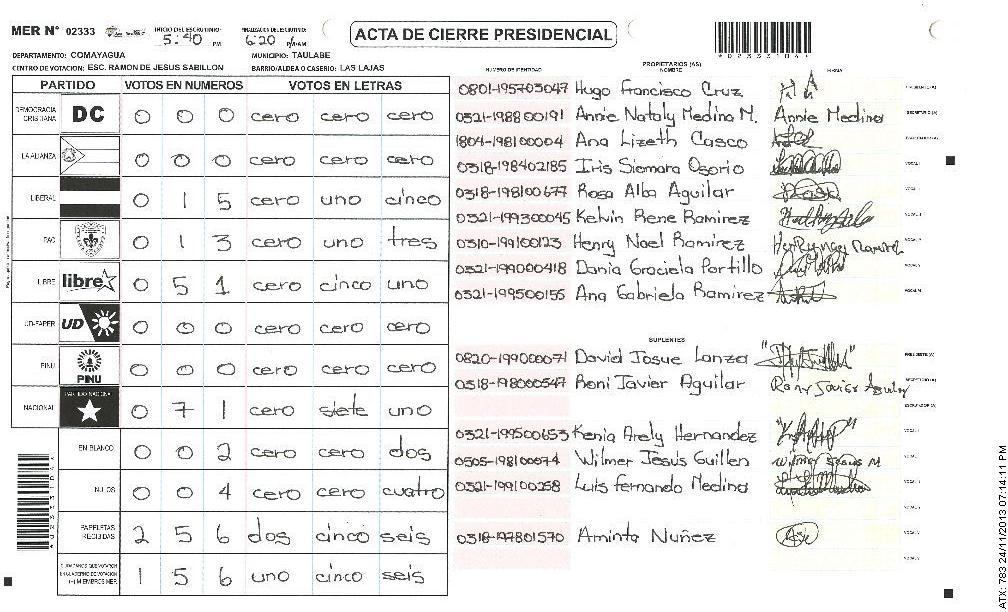 MER N° 02333
INICIO DEL ESCRUTINIO: 5:40 PM
FINALIZACION DEL ESCRUTINIO: 6:20 P/AM
ACTA DE CIERRE PRESIDENCIAL
DEPARTAMENTO: COMAYAGUA MUNICIPIO: TAULABE
CENTRO DE VOTACION: ESC. RAMON DE JESUS SABILLON BARRIO/ALDEA O CASERIO: LAS LAJAS
PARTIDO VOTOS EN NUMEROS VOTOS EN LETRAS
DEMOCRACIA CRISTIANA DC 0 0 0 cero cero cero
LA ALIANZA 0 0 0 cero cero cero
LIBERAL 0 1 5 cero uno cinco
PAC 0 1 3 cero uno tres
LIBRE libre 0 5 1 cero cinco uno
UD-FAPER UD 0 0 0 cero cero cero
PINU PINU 0 0 0 cero cero cero
NACIONAL PARTIDO NACIONAL 0 7 1 cero siete uno
EN BLANCO 0 0 2 cero cero dos
NULOS 0 0 4 cero cero cuatro
PAPELETAS RECIBIDAS 2 5 6 dos cinco seis
CIUDADANOS QUE VOTARON EN CUADERNO DE VOTACION (+) MIEMBROS MER 1 5 6 uno cinco seis
PROPIETARIOS (AS)
NUMERO DE IDENTIDAD NOMBRE FIRMA
0801-195703047 Hugo Francisco Cruz
0321-198800191 Annie Nataly Medina M. Annie Medina
1804-198100004 Ana Lizeth Casco
0318-198402185 Iris Siemara Osorio
0318-198100677 Rosa Alba Aguilar
0321-199300045 Kelvin Rene Ramirez
0310-199100123 Henry Noel Ramirez
0321-199000418 Dania Graciela Portillo
0321-199500155 Ana Gabriela Ramirez
SUPLENTES
0820-199000071 David Josue Lanza
0318-198000547 Roni Javier Aguilar Rony Javier Aguilar
0321-199500653 Kenia Arely Hernandez
0505-198100074 Wilmer Jesus Guillen Wilmer Jesus M
0321-199100258 Luis Fernando Medina
0318-197801570 Aminta Nuñez
ATX: 783 24/11/2013 07:14:11 PM